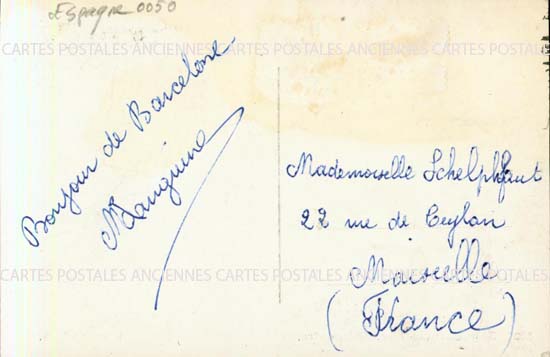 Espagne 0050
CARTES POSTALES ANCIENNES CARTES POSTALES ANCIENNES CARTES POSTALES ANCIENNES
Bonjour de Barcelone
Mademoiselle
22 rue de Ceylan
Marseille
(France)
CARTES POSTALES ANCIENNES CARTES POSTALES ANCIENNES CARTES POSTALES ANCIENNES